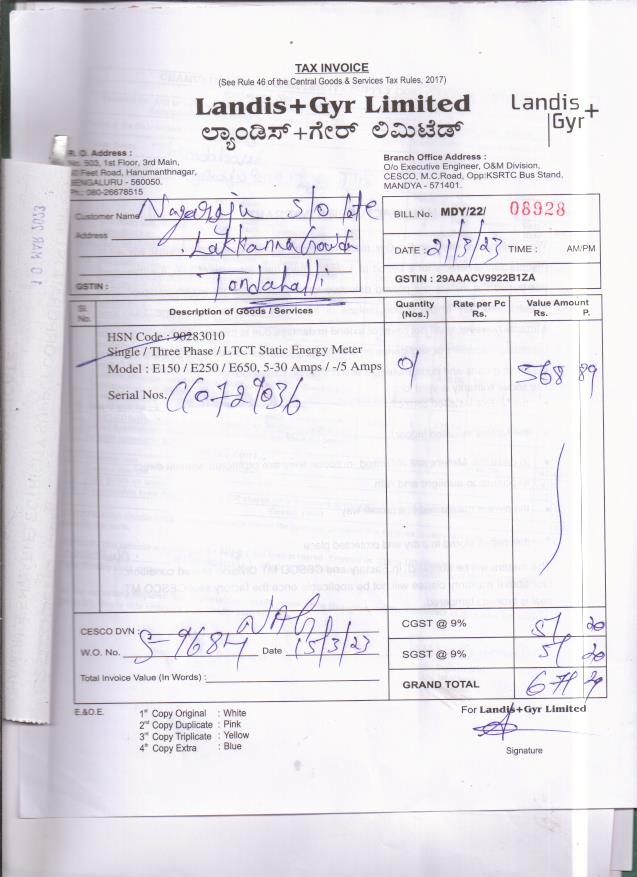 TAX INVOICE
(See Rule 46 of the Central Goods & Services Tax Rules, 2017)
Landis+Gyr Limited
Landis+
Gyr
ಲ್ಯಾಂಡಿಸ್+ಗೇರ್ ಲಿಮಿಟೆಡ್
R. O. Address :
No. 503, 1st Floor, 3rd Main,
Feet Road, Hanumanthnagar,
BENGALURU - 560050.
Ph.: 080-26678515
Branch Office Address :
O/o Executive Engineer, O&M Division,
CESCO, M.C.Road, Opp:KSRTC Bus Stand,
MANDYA - 571401.
10 MAR 2023
Customer Name Nagaraju S/o late
Address Lakkanna Gowda
Tondahalli
GSTIN :
BILL No. MDY/22/ 08928
DATE : 21/3/23 TIME : AM/PM
GSTIN : 29AAACV9922B1ZA
Sl. No. Description of Goods / Services Quantity (Nos.) Rate per Pc Rs. Value Amount Rs. P.
HSN Code : 90283010
Single / Three Phase / LTCT Static Energy Meter
Model : E150 / E250 / E650, 5-30 Amps / -/5 Amps 01 568 89
Serial Nos.
CESCO DVN : NAG
W.O. No. S-9684 Date 15/3/23
Total Invoice Value (In Words) :
CGST @ 9% 51 20
SGST @ 9% 51 20
GRAND TOTAL 671 29
E.&O.E.
1st Copy Original : White
2nd Copy Duplicate : Pink
3rd Copy Triplicate : Yellow
4th Copy Extra : Blue
For Landis+Gyr Limited
Signature